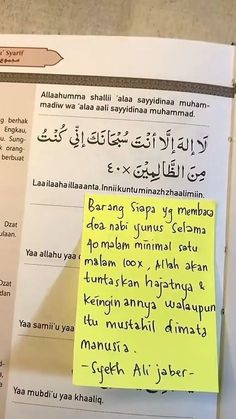 u' Syarif
Allaahumma shallii 'alaa sayyidinaa muham-
madiw wa 'alaa aali sayyidinaa muhammad.
ng berhak
Engkau,
u. Sung-
k orang-
berbuat
لَا إِلٰهَ إِلَّا أَنْتَ سُبْحَانَكَ إِنِّي كُنْتُ
مِنَ الظَّالِمِيْنَ ×٤٠
Laa ilaaha illaa anta. Innii kuntu minazhzhaalimiin.
Barang siapa yg membaca
doa nabi yunus selama
40 malam minimal satu
malam 100x, Allah akan
tuntaskan hajatnya &
keinginannya walaupun
itu mustahil dimata
manusia.
-Syekh Ali jaber-
Dzat
ulaan.
Yaa allahu yaa
Dzat
Yaa samii'u yaa
Yaa mubdi'u yaa khaaliq.